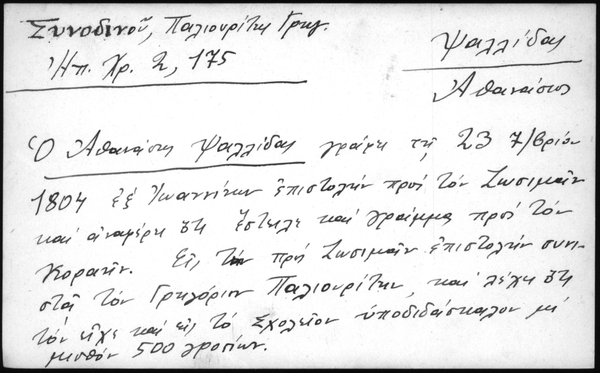 Συνοδινοῦ, Παλιουρίτης Γρηγ.
Ἠπ. Χρ. 2, 175
Ψαλλίδας
Ἀθανάσιος
Ὁ Ἀθανάσιος Ψαλλίδας γράφει τῇ 23 7/βρίου
1804 ἐξ Ἰωαννίνων ἐπιστολὴν πρὸς τὸν Ζωσιμᾶν
καὶ ἀναφέρει ὅτι ἔστειλε καὶ γράμμα πρὸς τὸν
Κοραῆν. Εἰς τὴν πρὸς Ζωσιμᾶν ἐπιστολὴν συνι-
στᾶ τὸν Γρηγόριον Παλιουρίτην, καὶ λέγει ὅτι
τὸν εἶχε καὶ εἰς τὸ Σχολεῖον ὑποδιδάσκαλον μὲ
μισθὸν 500 γροσίων.